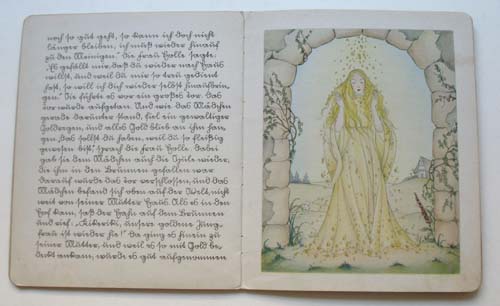 noch so gut geht, so kann ich doch nicht
länger bleiben, ich muß wieder hinauf
zu den Meinigen." Die Frau Holle sagte:
"Es gefällt mir, daß du wieder nach Haus
willst, und weil du mir so treu gedient
hast, so will ich dich wieder selbst hinaufbrin-
gen." Sie führte es vor ein großes Tor. Das
Tor wurde aufgetan. Und wie das Mädchen
gerade darunter stand, fiel ein gewaltiger
Goldregen, und alles Gold blieb an ihm han-
gen. "Das sollst du haben, weil du so fleißig
gewesen bist," sprach die Frau Holle. Dabei
gab sie dem Mädchen auch die Spule wieder,
die ihm in den Brunnen gefallen war.
Darauf wurde das Tor verschlossen, und das
Mädchen befand sich oben auf der Welt, nicht
weit von seiner Mutter Haus. Als es in den
Hof kam, saß der Hahn auf dem Brunnen
und rief: "Kikeriki, unsere goldene Jung-
frau ist wieder hie!" Da ging es hinein zu
seiner Mutter, und weil es so mit Gold be-
deckt ankam, wurde es gut aufgenommen